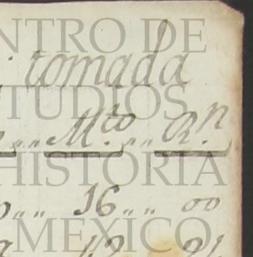 NTRO DE
tomada
TUDIOS
M.to R.n
HISTORIA
16 00
MEXICO